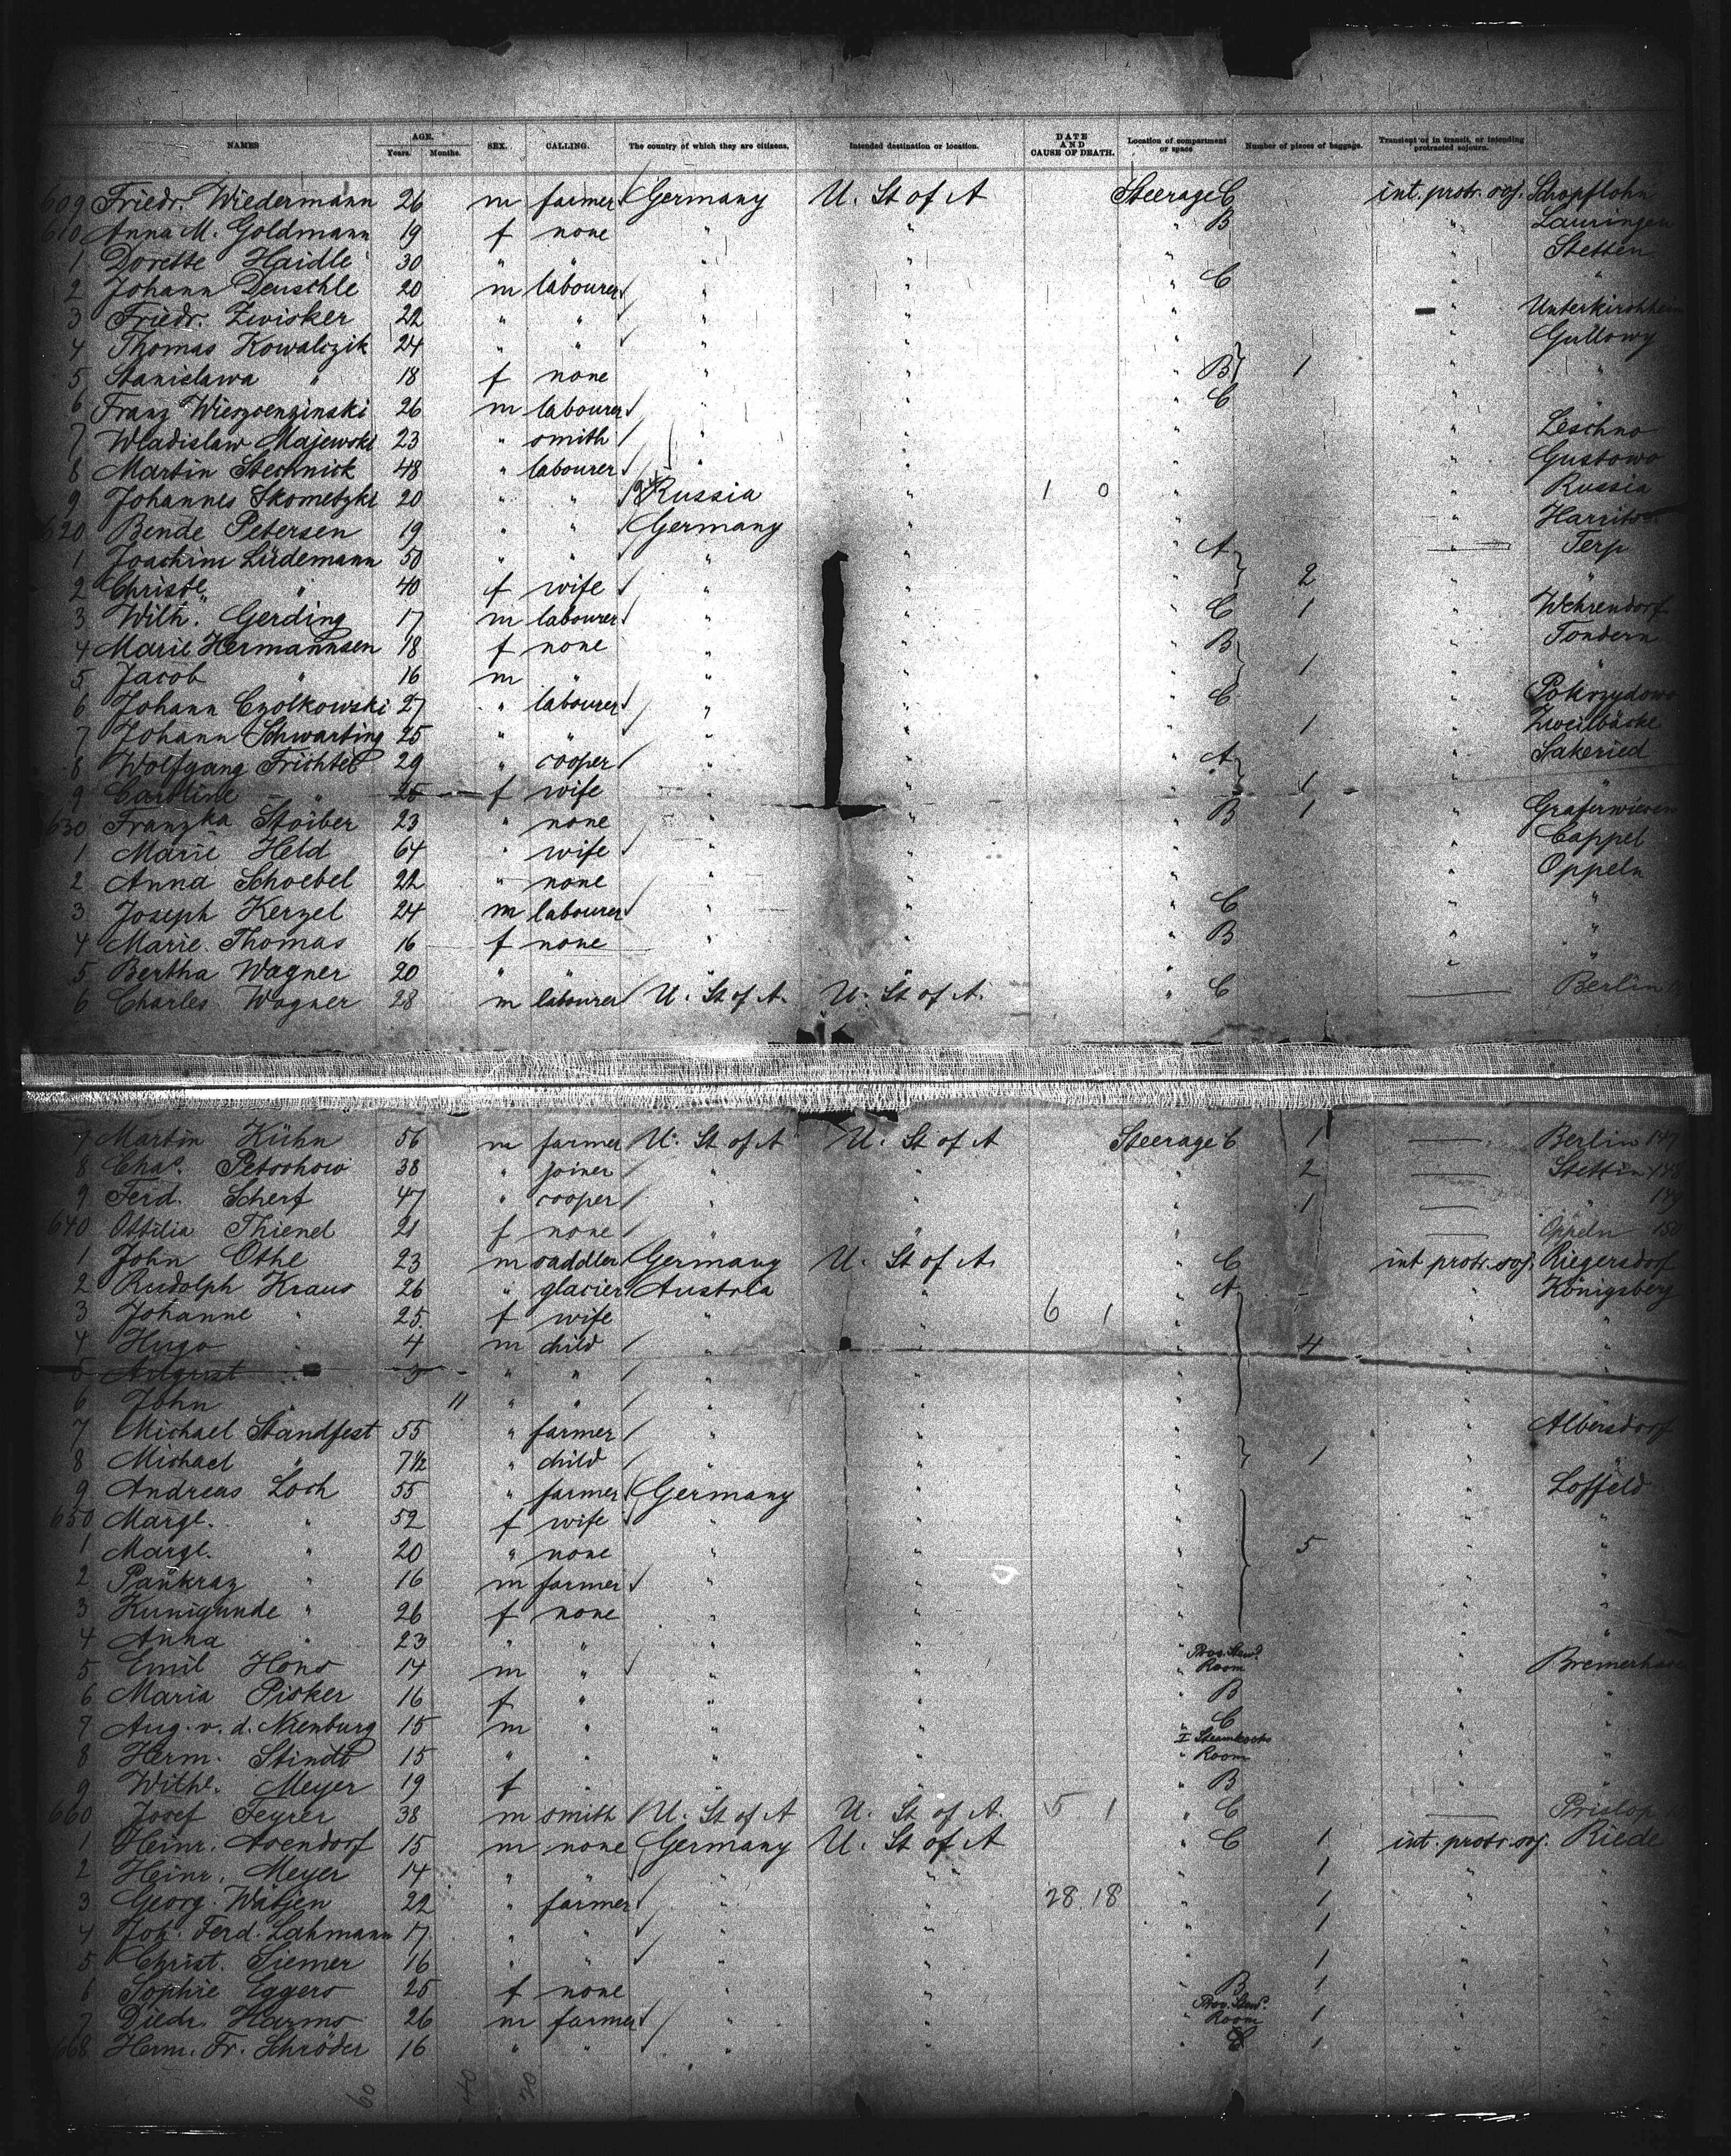 NAMES AGE. Years. Months. SEX. CALLING. The country of which they are citizens. Intended destination or location. DATE AND CAUSE OF DEATH. Location of compartment or space Number of pieces of baggage. Transient or in transit, or intending protracted sojourn.
609 Friedr. Wiedermann 26 m farmer Germany U. St of A Steerage C int. protr. soj. Schopflohn
610 Anna M. Goldmann 19 f none " " " B " Lauringen
1 Dorette Haidle 30 " " " " " " Stetten
2 Johann Deuschle 20 m labourer " " " C " "
3 Friedr. Zwisker 22 " " " " " " Unterkirchheim
4 Thomas Kowalczik 24 " " " " " " Gullowy
5 Stanislawa " 18 f none " " " B 1 " "
6 Franz 26 m labourer " " " C " "
7 Wladislaw Majewski 23 " smith " " " " Leschno
8 Martin Stecknick 48 " labourer " " " " Gustowo
9 Johannes Skometzki 20 " " Russia " 1 0 " " Russia
620 Bende Petersen 19 " " Germany " " "
1 Joachim Lüdemann 50 " " " " " A Terp
2 Christe " 40 f wife " " " 2 " "
3 Wilh. Gerding 17 m labourer " " " C 1 " Wehrendorf
4 Marie Hermannsen 18 f none " " " B " Tondern
5 Jacob " 16 m " " " " 1 " "
6 Johann Czolkowski 27 " labourer " " " C " Pokrzydowo
7 Johann Schwarting 25 " " " " " 1 " Zweilbäcke
8 Wolfgang Früchtel 29 " cooper " " " A " Sakeried
9 Caroline " 25 f wife " " " 1 " "
630 Franzka Stoiber 23 " none " " " B 1 " Graferwiesen
1 Marie Held 64 " wife " " " " Cappel
2 Anna Schoebel 22 " none " " " " Oppeln
3 Joseph Kerzel 24 m labourer " " " C " "
4 Marie Thomas 16 f none " " " B " "
5 Bertha Wagner 20 " " " " " " "
6 Charles Wagner 28 m labourer U. St of A. U. St of A. " C Berlin
7 Martin Kühn 56 m farmer U. St of A U. St of A Steerage C 1 Berlin 147
8 Chas. Petschow 38 " joiner " " " 2 Stettin 148
9 Ferd. Scherf 47 " cooper " " " 1 " 149
640 Ottilia Thienel 21 f none " " " Oppeln 150
1 John Othe 23 m saddler Germany U. St of A. " C int protr. soj. Riegersdorf
2 Rudolph Kraus 26 " glacier Austria " " A " Königsberg
3 Johanne " 25. f wife " " 6 1 " " "
4 Hugo " 4 m child " " " 4 " "
5 August " 3 " " " " " " "
6 John " 11 " " " " " " "
7 Michael Standfest 55 " farmer " " " " Albersdorf
8 Michael " 7 1/2 " child " " " 1 " "
9 Andreas Loch 55 " farmer Germany " " " Loffeld
650 Margt. " 52 f wife " " " " "
1 Margt. " 20 " none " " " 5 " "
2 Pankraz " 16 m farmer " " " " "
3 Kunigunde " 26 f none " " " " "
4 Anna " 23 " " " " " " "
5 Emil Hons 14 m " " " " Prov. Stew. Room " Bremerhaven
6 Maria Pisker 16 f " " " " B " "
7 Aug. v. d. Nienburg 15 m " " " " C " "
8 Herm. Stindt 15 " " " " " I Steamkochs Room " "
9 Withe. Meyer 19 f " " " " B " "
660 Josef Feyrer 38 m smith U. St of A U. St of A. 5 1 " C Prislop
1 Heinr. Asendorf 15 m none Germany U. St of A " C 1 int. protr. soj. Riede
2 Heinr. Meyer 14 " " " " " 1 " "
3 Georg Wätjen 22 " farmer " " 28 18 " 1 " "
4 Joh. Ferd. Lahmann 17 " " " " " 1 " "
5 Christ. Siemer 16 " " " " " 1 " "
6 Sophie Eggers 25 f none " " " B 1 " "
7 Diedr. Harms 26 m farmer " " " Prov. Stew. Room 1 " "
668 Herm. Fr. Schröder 16 " " " " " C 1 " "
60 40 20